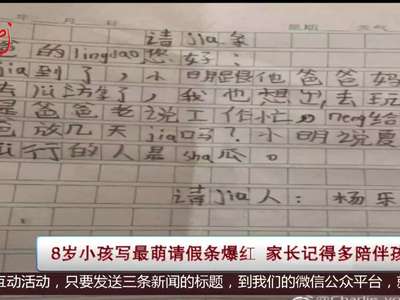 年 月 日 星期 天气
请jia条
爸的lingdao您好:
jia到了,小明跟他爸爸妈
去lü游了,我也想出去玩
是爸爸老说工作忙。neng给
爸放几天jia吗?小明说夏
lü行的人是sha瓜。
请jia人:杨乐
8岁小孩写最萌请假条爆红 家长记得多陪伴孩
互动活动,只要发送三条新闻的标题,到我们的微信公众平台,就